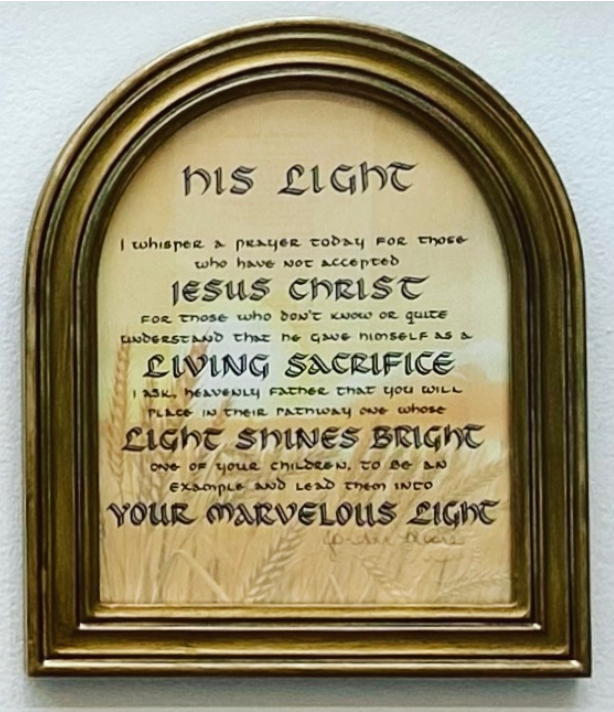 HIS LIGHT
I WHISPER A PRAYER TODAY FOR THOSE
WHO HAVE NOT ACCEPTED
JESUS CHRIST
FOR THOSE WHO DON'T KNOW OR QUITE
UNDERSTAND THAT HE GAVE HIMSELF AS A
LIVING SACRIFICE
I ASK, HEAVENLY FATHER THAT YOU WILL
PLACE IN THEIR PATHWAY ONE WHOSE
LIGHT SHINES BRIGHT
ONE OF YOUR CHILDREN, TO BE AN
EXAMPLE AND LEAD THEM INTO
YOUR MARVELOUS LIGHT